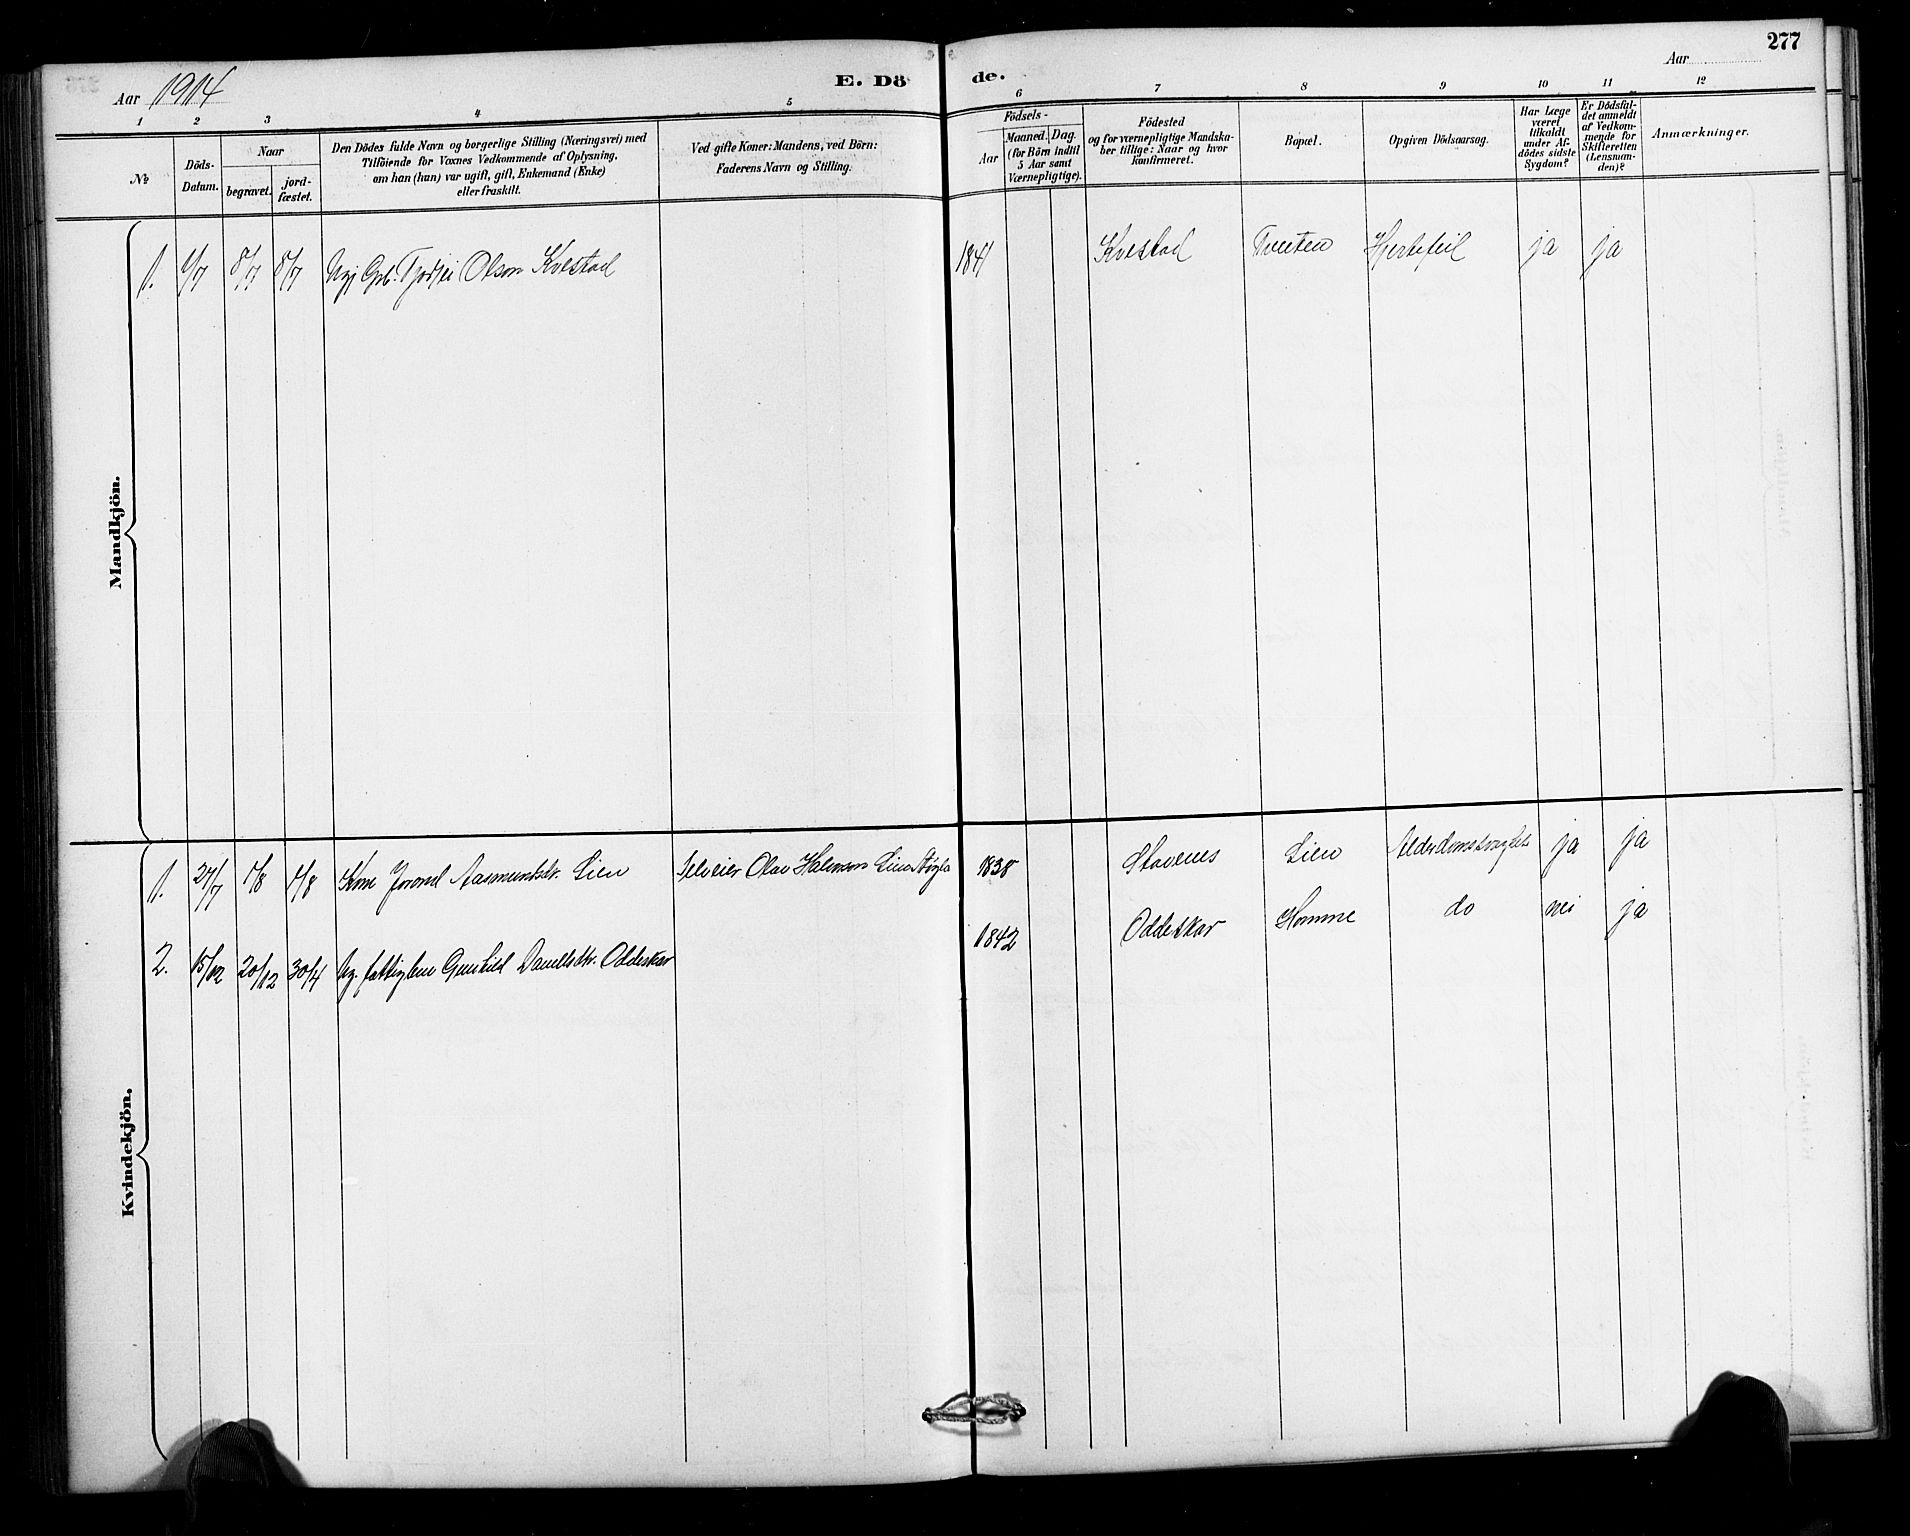 277
Aar 1914
E. Dö
de.
Aar
1 2 3 4 5 6 7 8 9 10 11 12
№
Döds-
Datum.
Naar
begravet.
jord-
fæstet.
Den Dödes fulde Navn og borgerlige Stilling (Næringsvei) med
Tilföiende for Voxnes Vedkommende af Oplysning,
om han (hun) var ugift, gift, Enkemand (Enke)
eller fraskilt.
Ved gifte Koner: Mandens, ved Börn:
Faderens Navn og Stilling.
Födsels-
Aar
Maaned. Dag.
(for Börn indtil
5 Aar samt
Værnepligtige).
Födested
og for værnepligtige Mandska-
ber tillige: Naar og hvor
konfirmeret.
Bopæl.
Opgiven Dödsaarsag.
Har Læge
været
tilkaldt
under Af-
dödes sidste
Sygdom?
Er Dödsfal-
det anmeldt
af Vedkom-
mende for
Skifteretten
(Lensman-
den)?
Anmærkninger.
Mandkjön.
1. 1/7 8/7 8/7 Olson Kvestad 1841 Kvestad Tveiten Hjertefeil ja ja
Kvindekjön.
1. 27/7 1/8 1/8 Kone Jorond Aasmundsdtr. Lien Selveier Olav Halvorson Lien 1838 Stavenes Lien Alderdomssvaghet ja ja
2. 15/12 20/12 30/4 Ug. fattiglem Gunhild Danielsdtr. Oddeskar 1842 Oddeskar Homme do nei ja